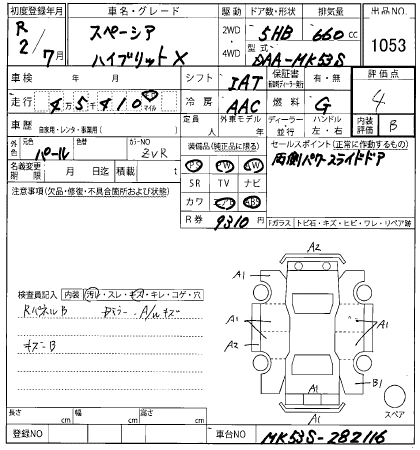 初度登録年月 車名・グレード 駆動 ドア数・形状 排気量 出品NO
R2/7月 スペーシア ハイブリットX 2WD・4WD 5HB 660cc 1053
型式 DAA-MK53S
車検 年 月 シフト IAT 保証書 有・無 評価点
走行 4万5千410 km マイル 冷房 AAC 燃料 G 4
車歴 自家用・レンタ・事業用( ) 定員 人 外車モデル 年 ディーラー 並行 ハンドル 左・右 内装評価 B
外色 元色 パール 色替 カラーNO ZVR 装備品(純正品に限る) セールスポイント(正常に作動するもの)
PS PW 両側パワースライドドア
名義変更期限 月 日迄 積載 t SR TV ナビ
注意事項(欠品・修復・不具合箇所および状態) カワ
R券 9310円 Fガラス トビ石・キズ・ヒビ・ワレ・リペア跡
A2
A1 A1
検査員記入 内装 汚レ・スレ・キズ・キレ・コゲ・穴
RパネルB
A1 A1
A2
キズーB
A1 B1
A1
スペア
長さ cm 幅 cm 高さ cm
登録NO 車台NO MK53S-282116